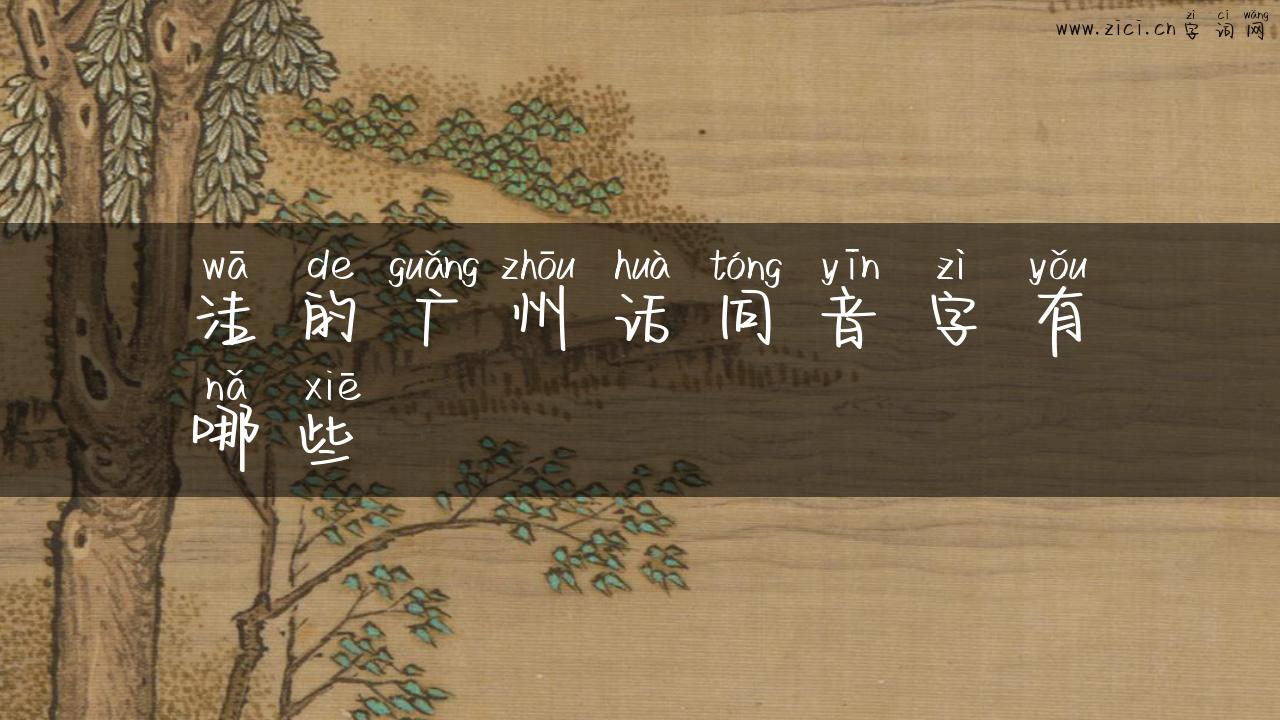 zì cí wǎng
www.zici.cn 字词网
wā de guǎng zhōu huà tóng yīn zì yǒu
洼的广州话同音字有
nǎ xiē
哪些